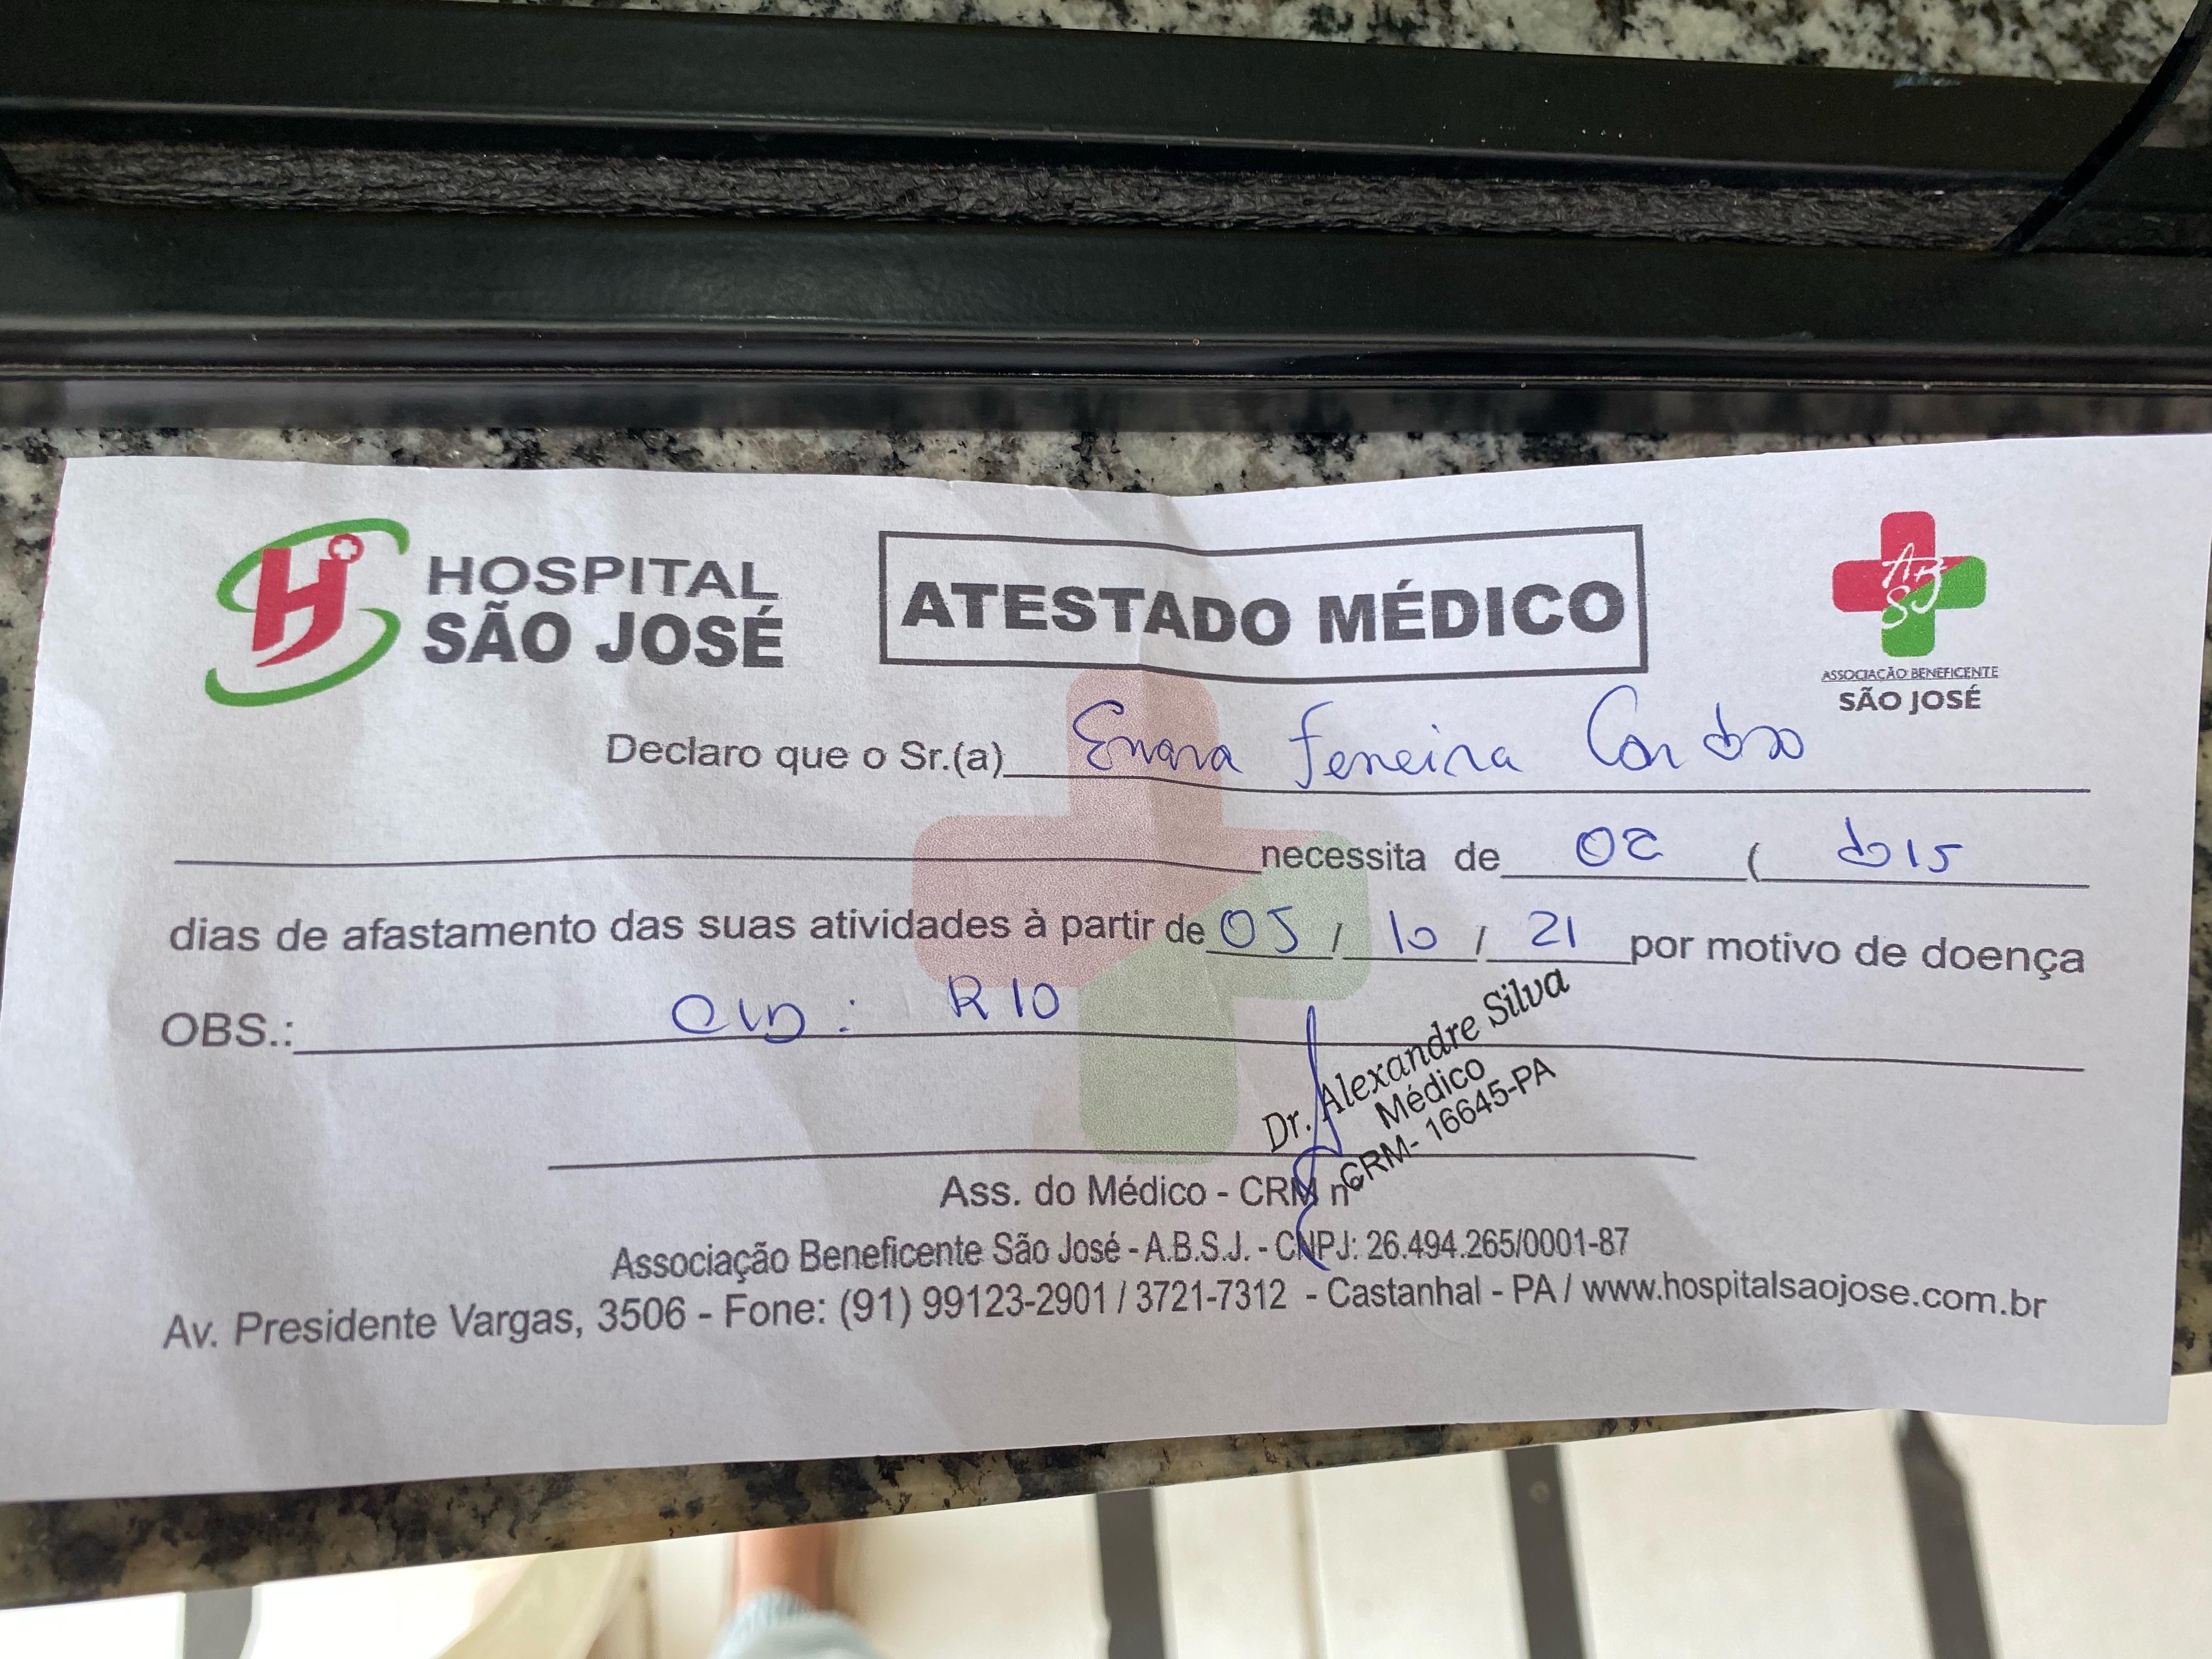 HOSPITAL
SÃO JOSÉ
ATESTADO MÉDICO
ASSOCIAÇÃO BENEFICENTE
SÃO JOSÉ
Declaro que o Sr.(a) Ferreira Cardoso
necessita de 02 ( dois
dias de afastamento das suas atividades à partir de 05 / 10 / 21 por motivo de doença
OBS.: R10
Dr. Alexandre Silva
Médico
CRM- 16645-PA
Ass. do Médico - CRM nº
Associação Beneficente São José - A.B.S.J. - CNPJ: 26.494.265/0001-87
Av. Presidente Vargas, 3506 - Fone: (91) 99123-2901 / 3721-7312 - Castanhal - PA / www.hospitalsaojose.com.br